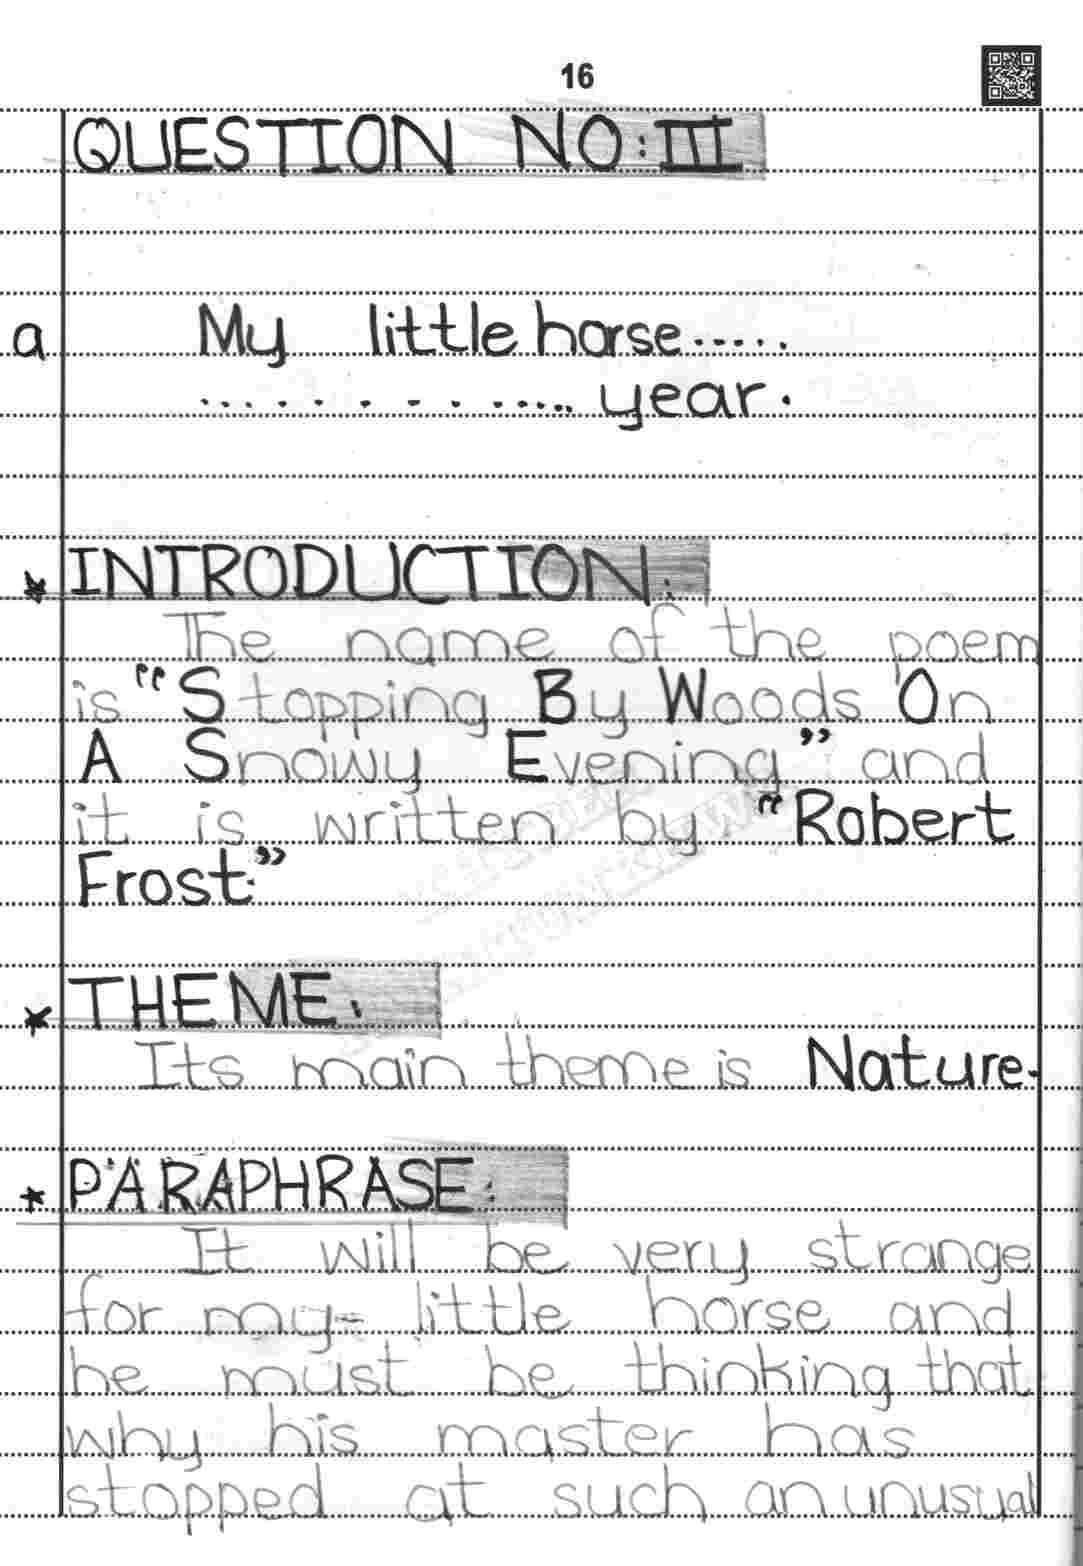 16
QUESTION NO: III
a My little horse.....
.............. year.
* INTRODUCTION:
The name of the poem
is "Stopping By Woods On
A Snowy Evening" and
it is written by "Robert
Frost."
* THEME:
Its main theme is Nature.
* PARAPHRASE:
It will be very strange
for my little horse and
he must be thinking that
why his master has
stopped at such an unusual